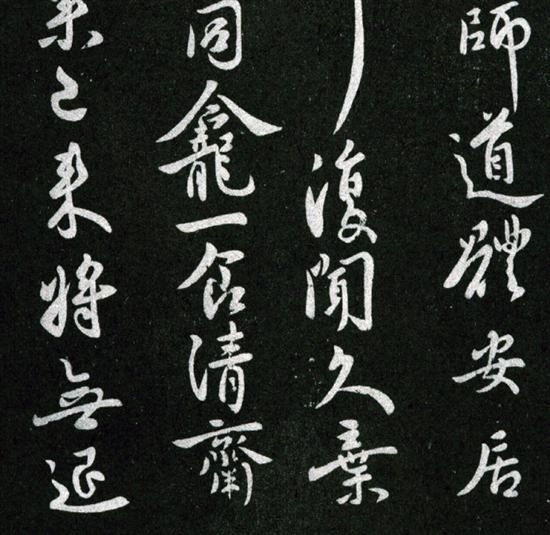 師道體安居
復聞久棄
同龕一食清齋
来已来將無退